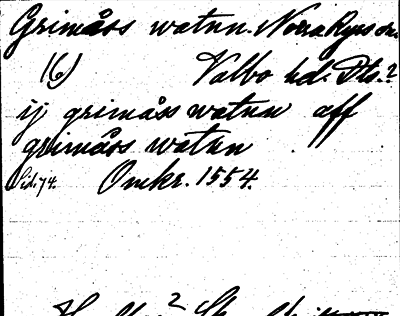 Grimåss watnn. Norra Ryss sn.
16) Valbo hd. Dls.?
ij grimåss watnn aff
grimåss watnn
Sid. 74. Omkr. 1554.